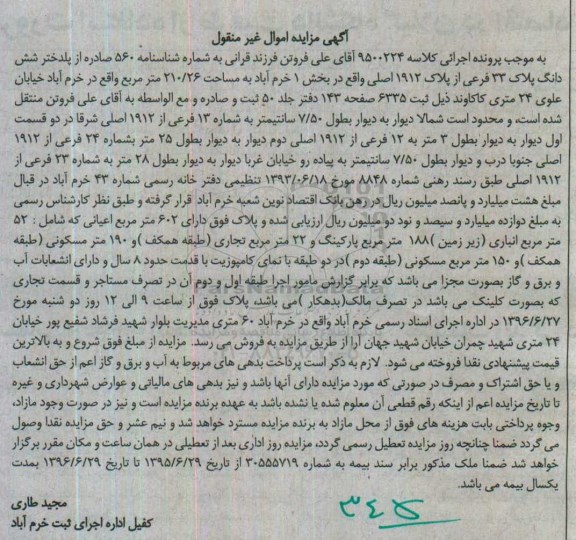 آگهی مزایده اموال غیر منقول
به موجب پرونده اجرائی کلاسه ۹۵۰۰۲۲۴ آقای علی فروتن فرزند قرانی به شماره شناسنامه ۵۶۰ صادره از پلدختر شش
دانگ پلاک ۳۳ فرعی از پلاک ۱۹۱۲ اصلی واقع در بخش ۱ خرم آباد به مساحت ۲۱۰/۲۶ متر مربع واقع در خرم آباد خیابان
علوی ۲۴ متری کاکاوند ذیل ثبت ۶۳۳۵ صفحه ۱۴۳ دفتر جلد ۵۰ ثبت و صادره و مع الواسطه به آقای علی فروتن منتقل
شده است، و محدود است شمالا دیوار به دیوار بطول ۷/۵۰ سانتیمتر به شماره ۱۳ فرعی از ۱۹۱۲ اصلی شرقا در دو قسمت
اول دیوار به دیوار بطول ۳ متر به ۱۲ فرعی از ۱۹۱۲ اصلی دوم دیوار به دیوار بطول ۲۵ متر بشماره ۲۴ فرعی از ۱۹۱۲
اصلی جنوبا درب و دیوار بطول ۷/۵۰ سانتیمتر به پیاده رو خیابان غربا دیوار به دیوار بطول ۲۸ متر به شماره ۲۳ فرعی از
۱۹۱۲ اصلی طبق رسند رهنی شماره ۸۸۴۸ مورخ ۱۳۹۳/۰۶/۱۸ تنظیمی دفتر خانه رسمی شماره ۴۳ خرم آباد در قبال
مبلغ هشت میلیارد و پانصد میلیون ریال در رهن بانک اقتصاد نوین شعبه خرم آباد قرار گرفته و طبق نظر کارشناس رسمی
به مبلغ دوازده میلیارد و سیصد و نود دو میلیون ریال ارزیابی شده و پلاک فوق دارای ۶۰۲ متر مربع اعیانی که شامل : ۵۲
متر مربع انباری (زیر زمین )۱۸۸ متر مربع پارکینگ و ۲۲ متر مربع تجاری (طبقه همکف )و ۱۹۰ متر مسکونی (طبقه
همکف )و ۱۵۰ متر مربع مسکونی (طبقه دوم )در دو طبقه با نمای کامپوزیت با قدمت حدود ۸ سال و دارای انشعابات آب
و برق و گاز بصورت مجزا می باشد که برابر گزارش مامور اجرا طبقه اول و دوم آن در تصرف مستاجر و قسمت تجاری
که بصورت کلینک می باشد در تصرف مالک(بدهکار )می باشد، پلاک فوق از ساعت ۹ الی ۱۲ روز دو شنبه مورخ
۱۳۹۶/۶/۲۷ در اداره اجرای اسناد رسمی خرم آباد واقع در خرم آباد ۶۰ متری مدیریت بلوار شهید فرشاد شفیع پور خیابان
۲۴ متری شهید چمران خیابان شهید جهان آرا از طریق مزایده به فروش می رسد. مزایده از مبلغ فوق شروع و به بالاترین
قیمت پیشنهادی نقدا فروخته می شود. لازم به ذکر است پرداخت بدهی های مربوط به آب و برق و گاز اعم از حق انشعاب
و یا حق اشتراک و مصرف در صورتی که مورد مزایده دارای آنها باشد و نیز بدهی های مالیاتی و عوارض شهرداری و غیره
تا تاریخ مزایده اعم از اینکه رقم قطعی آن معلوم شده یا نشده باشد به عهده برنده مزایده است و نیز در صورت وجود مازاد،
وجوه پرداختی بابت هزینه های فوق از محل مازاد به برنده مزایده مسترد خواهد شد و نیم عشر و حق مزایده نقدا وصول
می گردد ضمنا چنانچه روز مزایده تعطیل رسمی گردد، مزایده روز اداری بعد از تعطیلی در همان ساعت و مکان مقرر برگزار
خواهد شد ضمنا ملک مذکور برابر سند بیمه به شماره ۳۰۵۵۵۷۱۹ از تاریخ ۱۳۹۵/۶/۲۹ تا تاریخ ۱۳۹۶/۶/۲۹ بمدت
یکسال بیمه می باشد.
مجید طاری
کفیل اداره اجرای ثبت خرم آباد